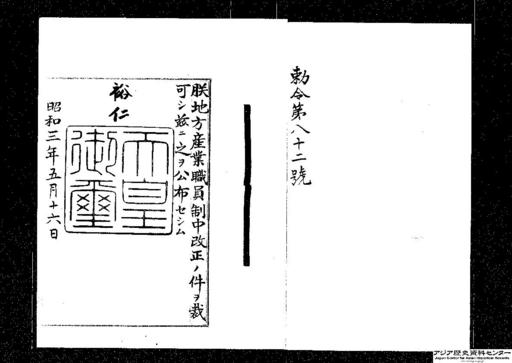 勅令第八十二號
朕地方産業職員制中改正ノ件ヲ裁
可シ玆ニ之ヲ公布セシム
裕仁
天皇
御璽
昭和三年五月十六日
アジア歴史資料センター
Japan Center for Asian Historical Records